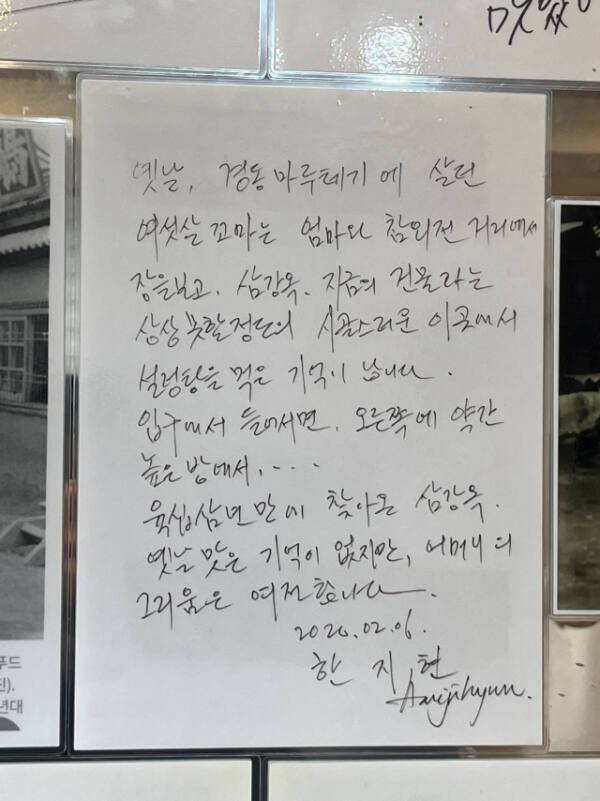 맛있
옛날, 경동 마루테기에 살던
여섯살 꼬마는 엄마와 참외전 거리에서
장을보고, 삼강옥, 지금의 건물과는
상상 못할정도의 시골스러운 이곳에서
설렁탕을 먹은 기억이 납니다.
입구에서 들어서면, 오른쪽에 약간
높은 방에서, . . . .
육십삼년 만에 찾아온 삼강옥.
옛날 맛은 기억이 없지만, 어머니의
그리움은 여전합니다.
2020.02.06.
한 지 현
Hanjihyun.
푸드
진).
년대